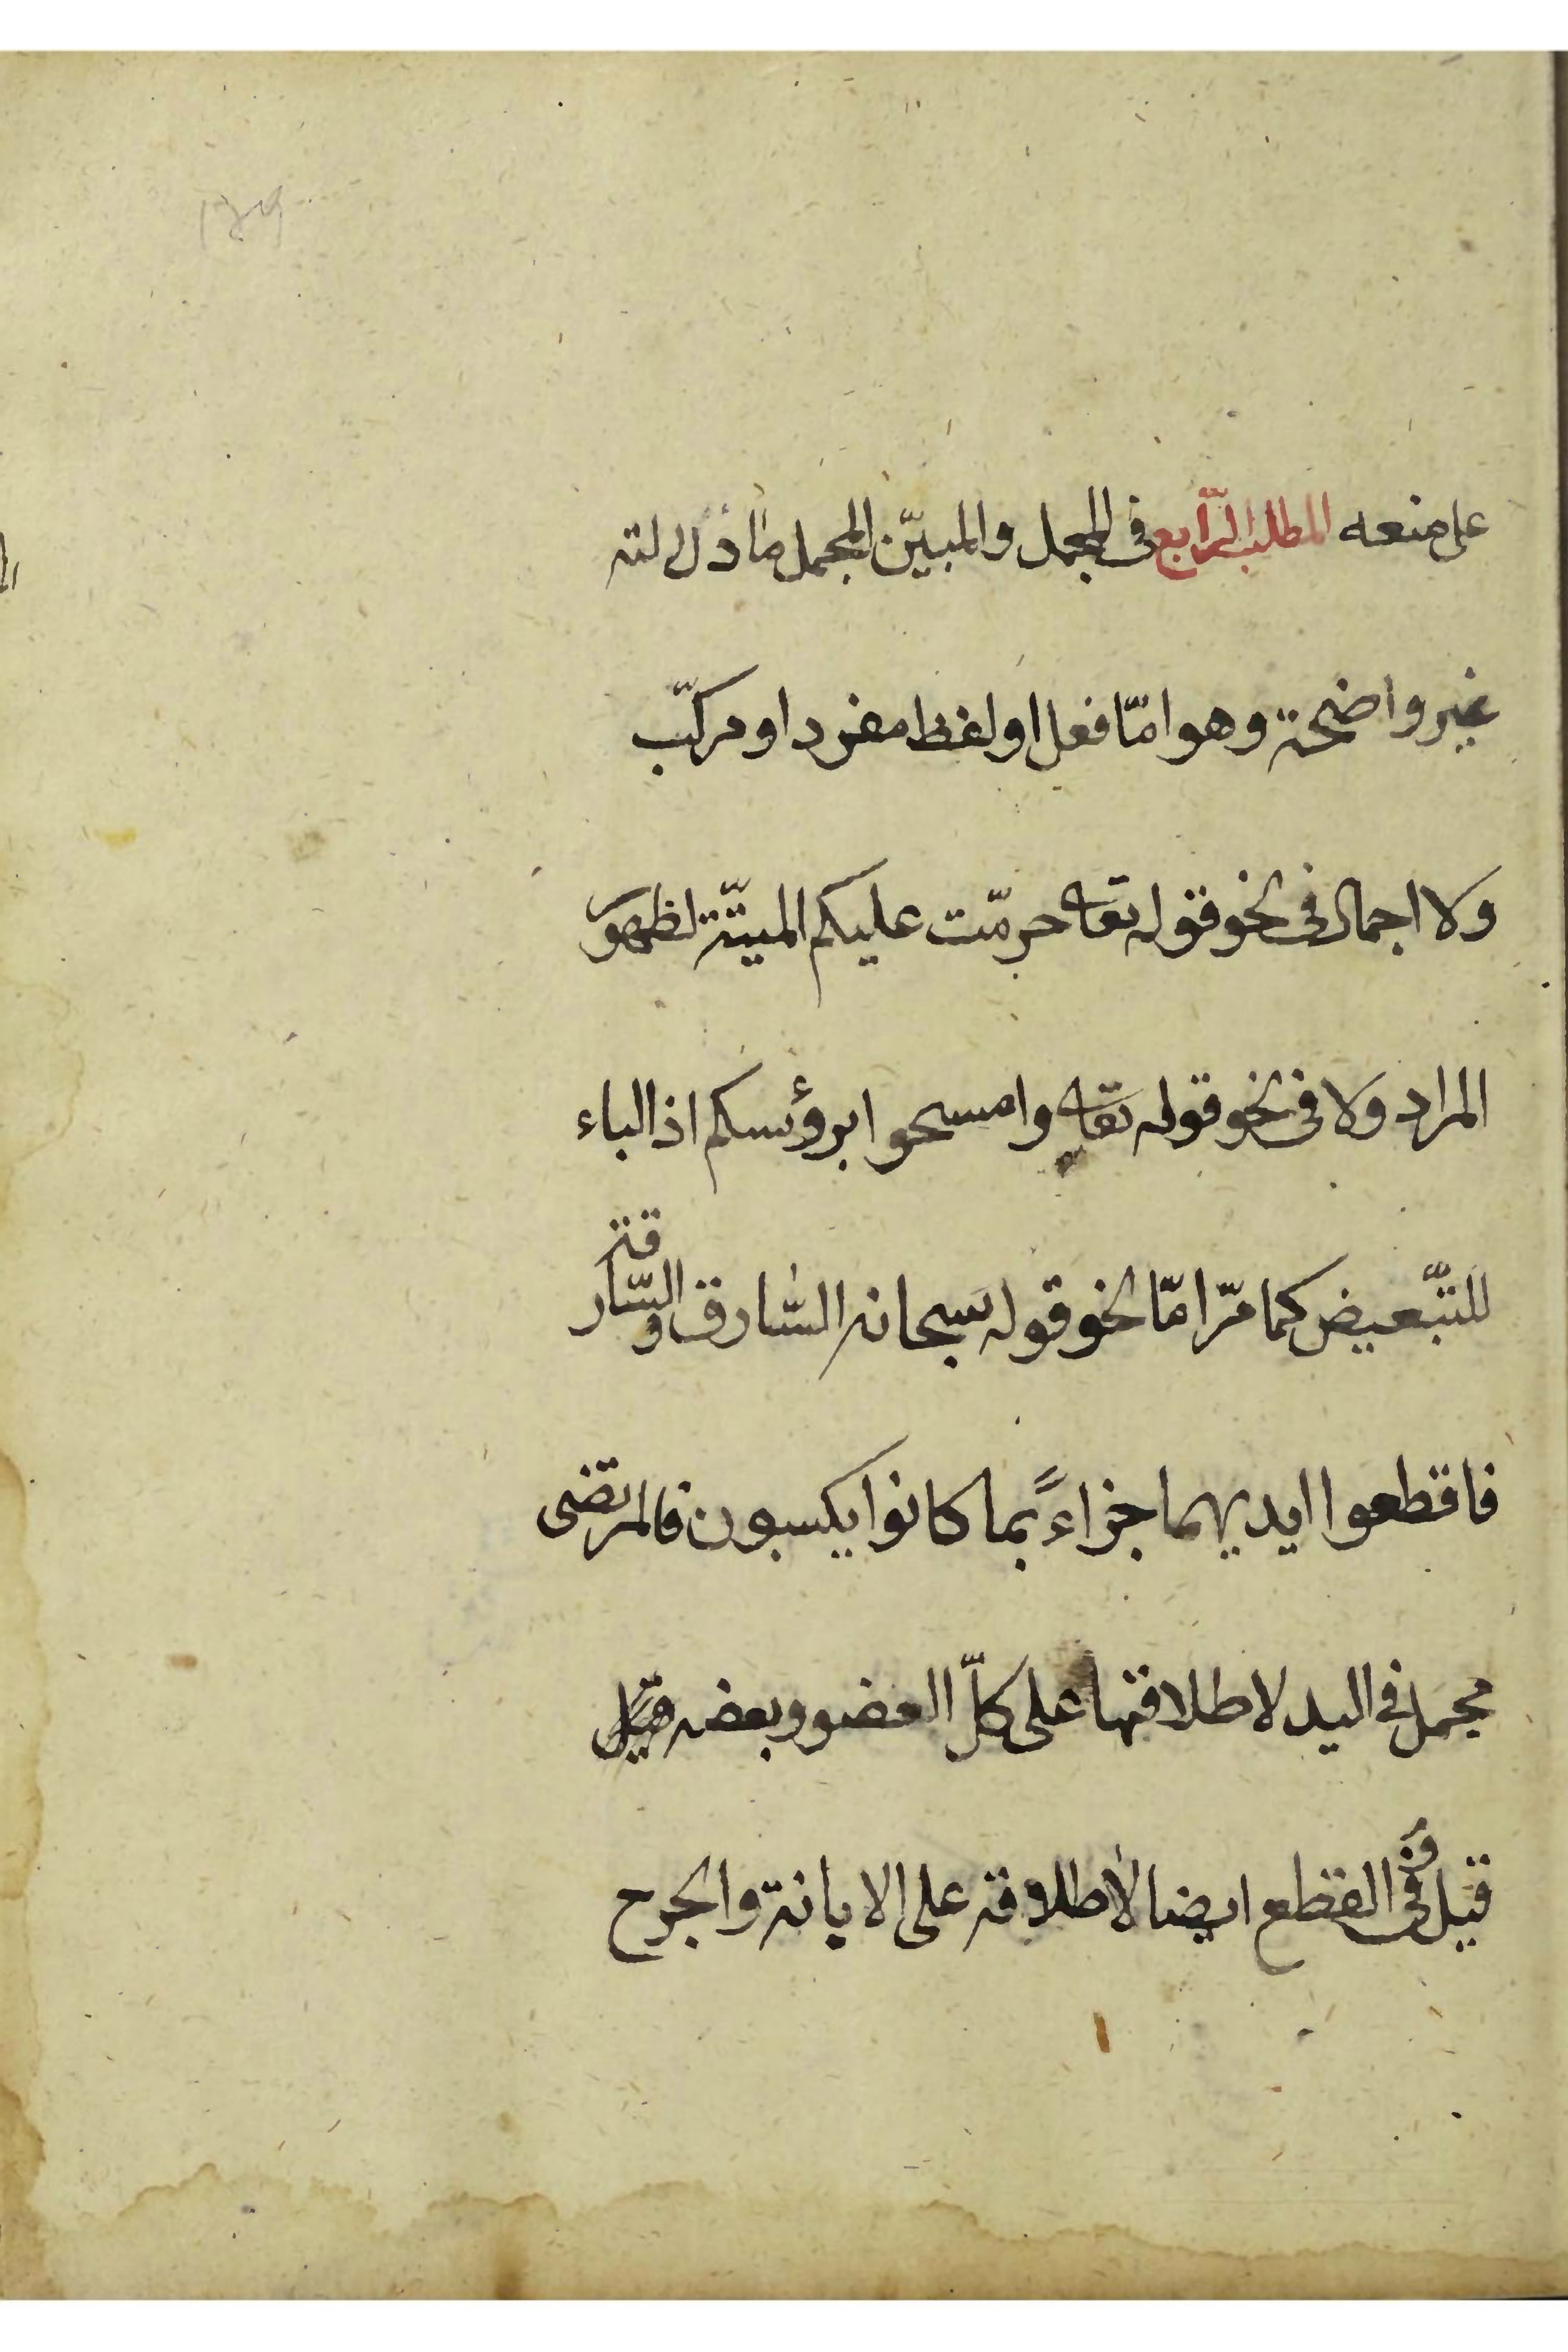 على منعه المطلب الرّابع فى المجمل والمبيّن المجمل ما دلالته
غير واضحة وهو امّا فعل او لفظ مفرد او مركّب
ولا اجمال فى نحو قوله تعالى حرمّت عليكم الميتة لظهور
المراد ولا فى نحو قوله تعالى وامسحوا برؤسكم اذ الباء
للتّبعيض كما مرّ امّا نحو قوله سبحانه السّارق والسّارقة
فاقطعوا ايديهما جزاءً بما كانوا يكسبون فالمرتضى
مجمل فى اليد لاطلاقها على كلّ العضو وبعضه
قيل وفى القطع ايضا لأطلاقه على الابانة والجرح